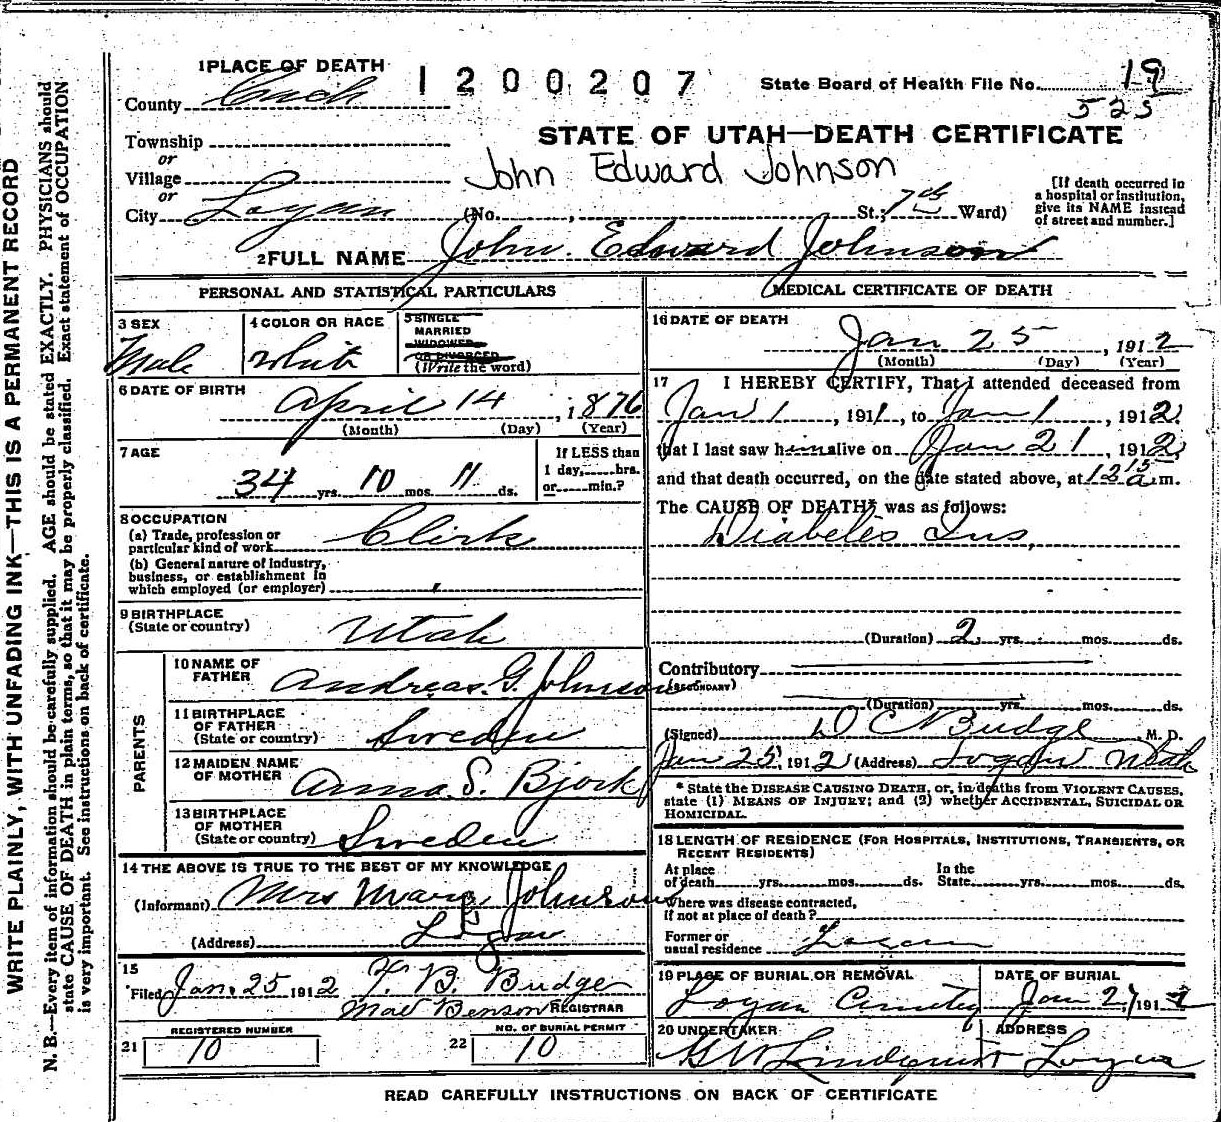 WRITE PLAINLY, WITH UNFADING INK—THIS IS A PERMANENT RECORD
N. B.—Every item of information should be carefully supplied. AGE should be stated EXACTLY. PHYSICIANS should
state CAUSE OF DEATH in plain terms, so that it may be properly classified. Exact statement of OCCUPATION
is very important. See instructions on back of certificate.
1 PLACE OF DEATH
1200207
State Board of Health File No. 19
525
County Cach
STATE OF UTAH—DEATH CERTIFICATE
Township
or
Village
John Edward Johnson
or
City Logan (No. , St.; 7th Ward)
[If death occurred in
a hospital or institution,
give its NAME instead
of street and number.]
2 FULL NAME John Edward Johnson
PERSONAL AND STATISTICAL PARTICULARS
3 SEX
Male
4 COLOR OR RACE
White
5 SINGLE
MARRIED
WIDOWED
OR DIVORCED
(Write the word)
6 DATE OF BIRTH
April 14, 1876
(Month) (Day) (Year)
7 AGE
34 yrs. 10 mos. 11 ds.
If LESS than
1 day, hrs.
or min.?
8 OCCUPATION
(a) Trade, profession or
particular kind of work Clerk
(b) General nature of Industry,
business, or establishment in
which employed (or employer)
9 BIRTHPLACE
(State or country) Utah
PARENTS
10 NAME OF
FATHER Andreas G. Johnson
11 BIRTHPLACE
OF FATHER
(State or country) Sweden
12 MAIDEN NAME
OF MOTHER Anna S. Bjork
13 BIRTHPLACE
OF MOTHER
(State or country) Sweden
14 THE ABOVE IS TRUE TO THE BEST OF MY KNOWLEDGE
(Informant) Mrs Mary Johnson
(Address) Logan
15
Filed Jan. 25 1912 B. Budge
Mae Benson REGISTRAR
REGISTERED NUMBER
21 10
NO. OF BURIAL PERMIT
22 10
MEDICAL CERTIFICATE OF DEATH
16 DATE OF DEATH
Jan 25, 1912
(Month) (Day) (Year)
17 I HEREBY CERTIFY, That I attended deceased from
Jan 1, 1911, to Jan 1, 1912
that I last saw him alive on Jan 21, 1912
and that death occurred, on the date stated above, at 1215 a m.
The CAUSE OF DEATH* was as follows:
Diabetes Ins,
(Duration) 2 yrs. mos. ds.
Contributory
(SECONDARY)
(Duration) yrs. mos. ds.
(Signed) D C Budge, M. D.
Jan 25, 1912 (Address) Logan Utah
* State the DISEASE CAUSING DEATH, or, in deaths from VIOLENT CAUSES,
state (1) MEANS OF INJURY; and (2) whether ACCIDENTAL, SUICIDAL OR
HOMICIDAL.
18 LENGTH OF RESIDENCE (FOR HOSPITALS, INSTITUTIONS, TRANSIENTS, OR
RECENT RESIDENTS)
At place
of death yrs. mos. ds. In the
State yrs. mos. ds.
Where was disease contracted,
if not at place of death?
Former or
usual residence Logan
19 PLACE OF BURIAL OR REMOVAL
Logan Cemetery
DATE OF BURIAL
Jan 27, 1912
20 UNDERTAKER
Lindquist
ADDRESS
Logan
READ CAREFULLY INSTRUCTIONS ON BACK OF CERTIFICATE